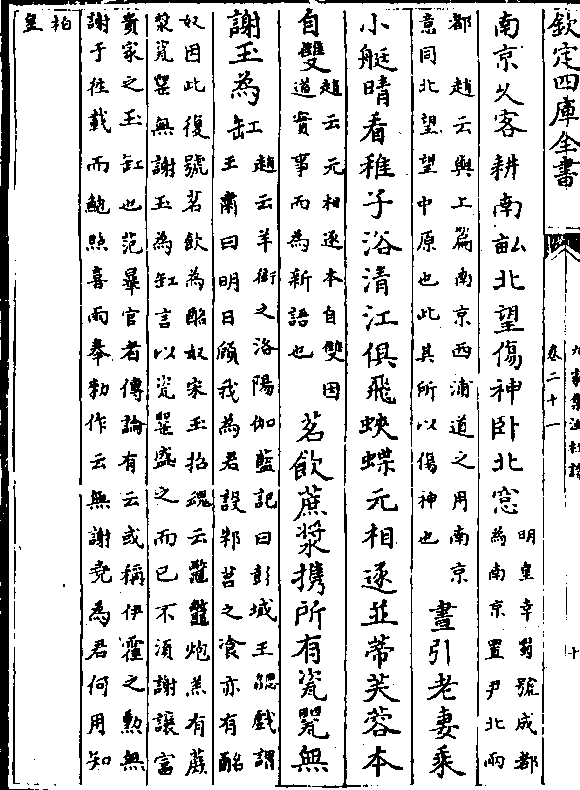 欽定四庫全書
九家集注杜詩
卷二十一
十
南京久客耕南畝北望傷神卧北窓
明皇幸蜀號成都
為南京置尹北兩
都趙云與上篇南京西浦道之用南京
意同北望望中原也此其所以傷神也
晝引老妻乗
小艇晴看稚子浴清江俱飛蛺蝶元相逐並蒂芙蓉本
自雙
趙云元相逐本自雙因
道實事而為新語也
茗飲蔗漿携所有瓷甖無
謝玉為缸
趙云羊衒之洛陽伽藍記曰彭城王勰戲謂
王肅曰明日顧我為君設邾莒之飡亦有酪
奴因此復號茗飲為酪奴宋玉招魂云鼈炮羔有蔗
漿瓷甖無謝玉為缸言以瓷甖盛之而已不須謝讓富
貴家之玉缸也范曄宦者傳論有云或稱伊霍之勲無
謝于往載而鮑照喜雨奉勅作云無謝堯為君何用知
柏
皇